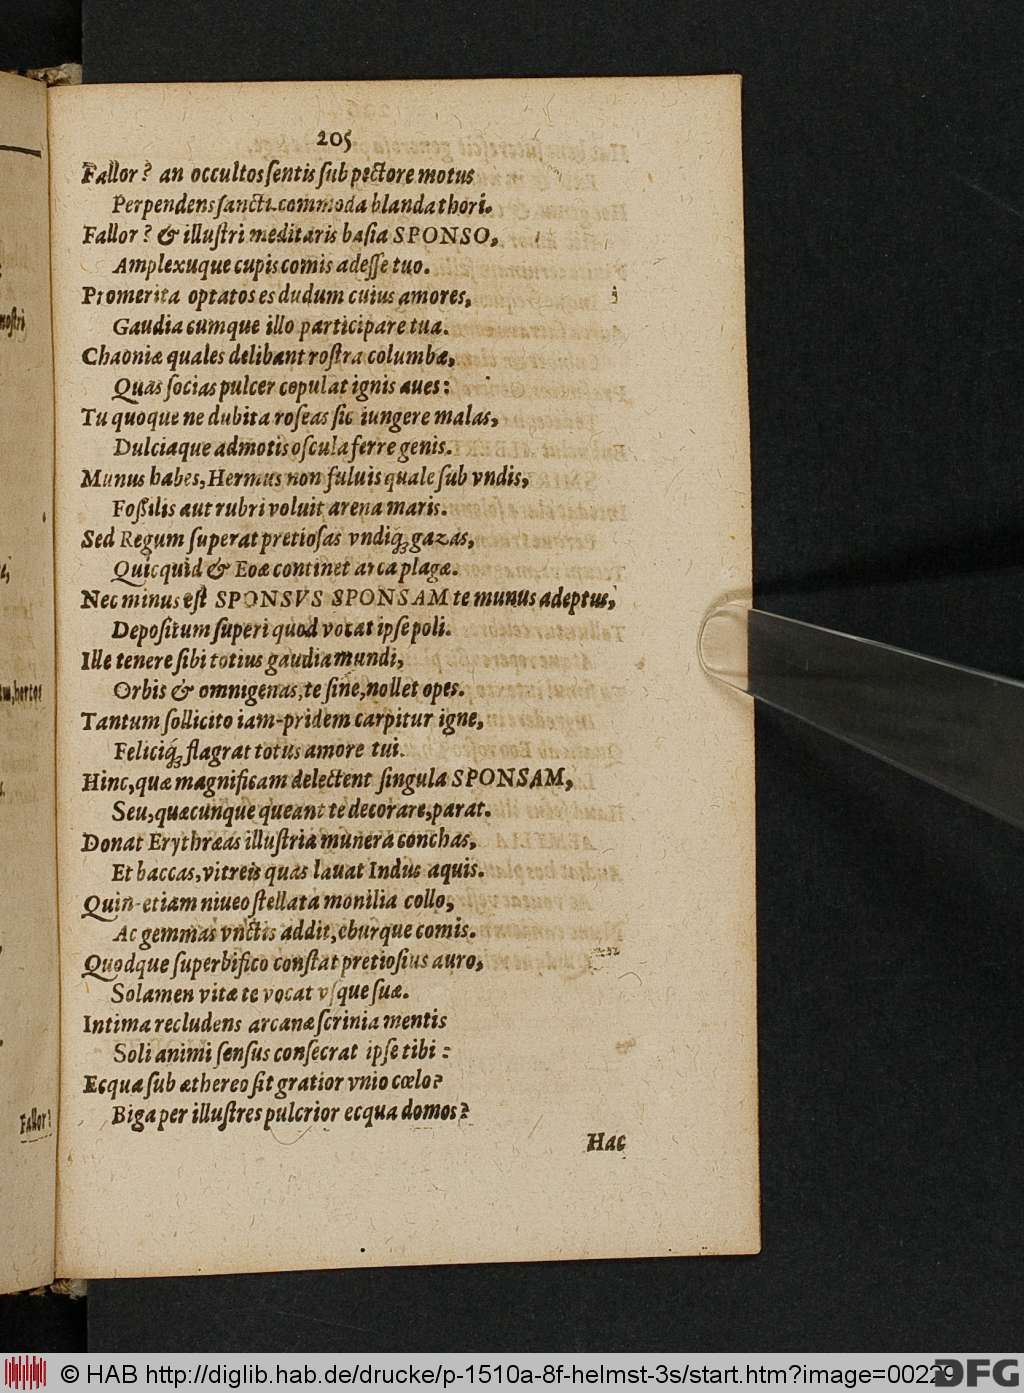 205
Fallor? an occultos ſentis ſub pectore motus
Perpendens ſancti commoda blanda thori.
Fallor? & illuſtri meditaris baſia SPONSO,
Amplexuque cupis comis adeſſe tuo.
Promerita optatos es dudum cuius amores,
Gaudia cumque illo participare tua.
Chaoniæ quales delibant roſtra columbæ,
Quas ſocias pulcer copulat ignis aues:
Tu quoque ne dubita roſeas ſic iungere malas,
Dulciaque admotis oſcula ferre genis.
Munus habes, Hermus non fuluis quale ſub vndis,
Foſſilis aut rubri voluit arena maris.
Sed Regum ſuperat pretioſas vndiq; gazas,
Quicquid & Eoæ continet arca plagæ.
Nec minus eſt SPONSVS SPONSAM te munus adeptus,
Depoſitum ſuperi quod vocat ipſe poli.
Ille tenere ſibi totius gaudia mundi,
Orbis & omnigenas, te ſine, nollet opes.
Tantum ſollicito iam-pridem carpitur igne,
Feliciq́; flagrat totus amore tui.
Hinc, quæ magnificam delectent ſingula SPONSAM,
Seu, quæcunque queant te decorare, parat.
Donat Erythræas illuſtria munera conchas,
Et baccas, vitreis quas lauat Indus aquis.
Quin-etiam niueo ſtellata monilia collo,
Ac gemmas vnctis addit, eburque comis.
Quodque ſuperbifico conſtat pretioſius auro,
Solamen vitæ te vocat vſque ſuæ.
Intima recludens arcanæ ſcrinia mentis
Soli animi ſenſus conſecrat ipſe tibi:
Ecqua ſub æthereo ſit gratior vnio cœlo?
Biga per illuſtres pulcrior ecqua domos?
Hac
noſtri
hortos
Fallor?
© HAB http://diglib.hab.de/drucke/p-1510a-8f-helmst-3s/start.htm?image=00229
DFG